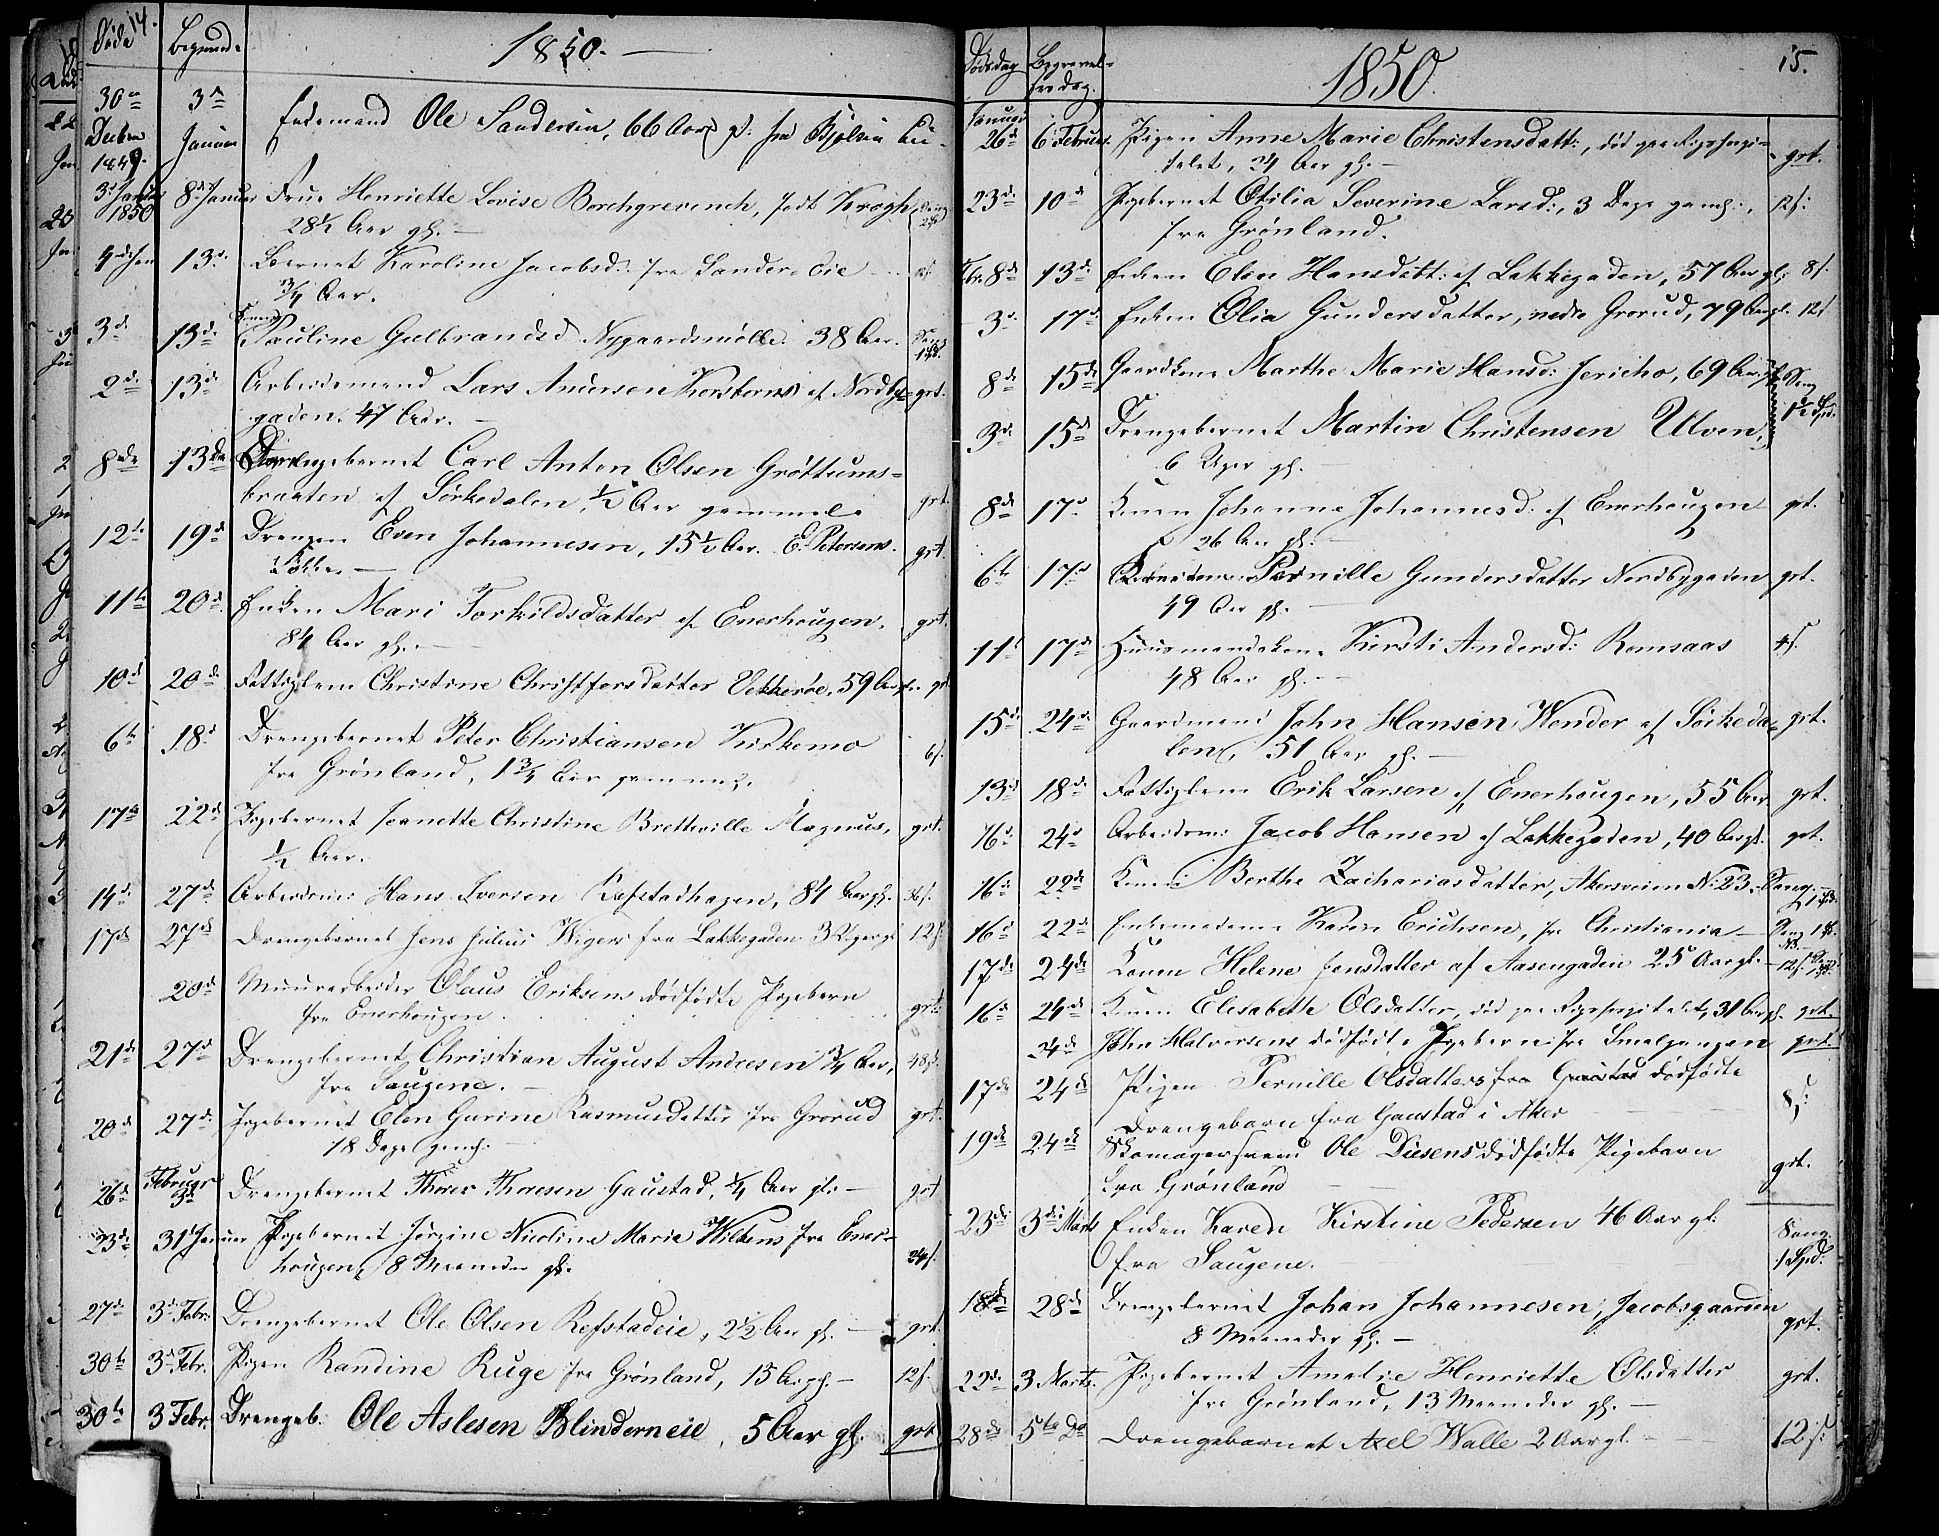 14.
Døde
Begravede
1850.
30te Decbr 1849. 3die Januar Enkemand Ole Sandersen, 66 Aar gl: fra
3die Januar 1850 8de Januar Frue Henriette Lovise Borchgrevinch, født Krogh,
28½ Aar gl.
13de Barnet Karoline Jacobsd: fra Sander-Eie
¾ Aar.
3de 13de Pauline Gulbrandsd Nygaardsmølle 38 Aar.
2de 13de Arbeidsmand Lars Andersen af Nordby- grt.
gaden. 47 Aar.
8de 13de Drengebarnet Carl Anton Olsen Grøttums-
braaten af Sørkedalen, ½ Aar gammel. grt.
12te 19de Drengen Even Johannesen, 15½ Aar. E. Petersens- grt.
Løkke
11te 20de Enken Mari Torkildsdatter af Enerhougen, grt.
84 Aar gl.
10de 20de Fattiglem Christine Christffersdatter Vekkerøe, 59 Aar gl. grt
6te 18de Drengebarnet Peter Christiansen Kirkemo
fra Grønland, 1¾ Aar gammel. 6s.
17de 22de Pigebarnet Jeanette Christine Bretteville Magnus, grt.
½ Aar.
14de 27de Arbeidsm: Hans Iversen Refstadhagen, 84 Aar gl. 36s.
17de 27de Drengebarnet Jens Julius Wiger fra Lakkegaden 3 Uger gl 12s.
20de Muurarbeider Olaus Eriksens dødfødte Pigebarn
fra Enerhougen. grt.
21de 27de Drengebarnet Christian August Andresen ¾ Aar, 48s.
fra Saugene.
20de 27de Pigebarnet Elen Gurine Rasmusdatter fra Grorud grt.
18 Dage gamel.
26de Februar 3de Drengebarnet Thorer Thoresen Gaustad, ¼ Aar gl. grt
23de 31te Januar Pigebarnet Jørgine Nicoline Marie Wilkens fra Ener-
hougen, 8 Maaneder gl. 24s.
27de 3de Febr: Drengebarnet Ole Olsen Refstadeie, 2½ Aar gl. grt.
30te 3de Febr. Pigen Randine Ruge fra Grønland, 15 Aar gl. 12s.
30te 3 Febr. Drengeb: Ole Aslesen Blinderneie, 5 Aar gl. grt
15.
Dødsdag
Begravel-
sesdag.
1850.
Januar
26de 6 Februar Pigen Anne Marie Christensdatt:, død paa Rigshospi-
talet, 24 Aar gl. grt.
23de 10de Pigebarnet Otilia Severine Larsd:, 3 Dage gamel, 12s:
fra Grønland.
Febr. 8de 13de Enken Elen Hansdatt: af Lakkegaden, 57 Aar gl; 8s.
3de 17de Enken Olia Gundersdatter, nedre Grorud, 79 Aar gl. 12s
8de 15de Gaardkone Marthe Marie Hansd: Jericho, 69 Aar gl.
3de 15de Drengebarnet Martin Christensen Ulven,
6 Uger gl.
8de 17de Konen Johanne Johannesd: af Enerhougen grt.
26 Aar gl.
6te 17de Pernille Gundersdatter Nordbygaden grt.
49 Aar gl.
11te 17de Huusmandskone Kirsti Andersd: Romsaas 4s.
48 Aar gl.
15de 24de Gaardmand John Hansen Wender af Sørkeda- grt.
len, 51 Aar gl.
13de 18de Fattiglem Erik Larsen af Enerhougen, 55 Aar grt.
16de 24de Arbeidsm: Jacob Hansen af Lakkegaden, 40 Aar gl. grt.
16de 22de Konen Berthe Zachariasdatter, Akersveien No 23.
16de 22de Enkemadame Karen Erichsen, fra Christiania
17de 24de Konen Helene Jensdatter af Aasengaden 25 Aar gl. 12s.
16de 24de Konen Elisabeth Olsdatter, død paa Rigshospitalet, 31 Aar gl. grt.
24de John Halversens dødfødte Pigebarn fra Smalgangen grt.
17de 24de Pigen Pernille Olsdatters fra Gaustad dødfødte
Drengebarn fra Gaustad i Aker 8s:
19de 24de Skomagersvend Ole Diesens dødfødte Pigebarn
fra Grønland grt.
23de 3die Marts Enken Karen Kirstine Pedersen 46 Aar gl. Seng
fra Saugene. 1 Spd:
18de 28de Drengebarnet Johan Johannesen, Jacobsgaarden
8 Maaneder gl. grt.
22de 3 Marts. Pigebarnet Amalie Henriette Olsdatter grt.
fra Grønland, 13 Maaneder gl.
28de 5te Do Drengebarnet Axel Walle 2 Aar gl. 12s: